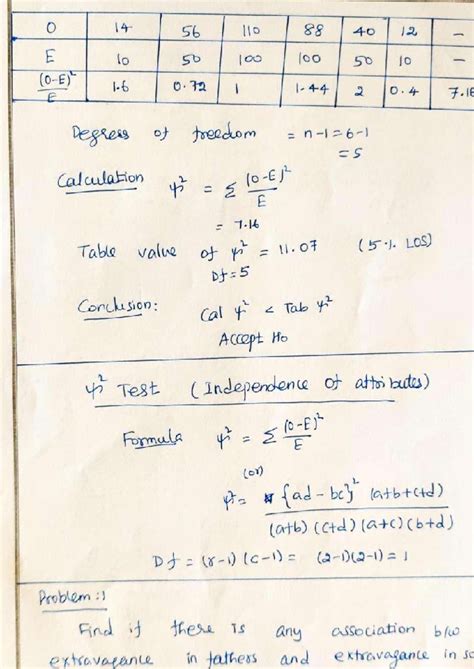 O 14 56 110 88 40 12 –
E 10 50 100 100 50 10 –
(O-E)²/E 1.6 0.72 1 1.44 2 0.4 7.16
Degress of freedom = n-1 = 6-1
= 5
Calculation ψ² = Σ (O-E)²/E
= 7.16
Table value of ψ² = 11.07 (5% LOS)
Df=5
Conclusion: Cal ψ² < Tab ψ²
Accept Ho
ψ² Test (Independence of attributes)
Formula ψ² = Σ (O-E)²/E
(or)
ψ² = {ad - bc}² (a+b+c+d)
(a+b) (c+d) (a+c) (b+d)
Df = (r-1) (c-1) = (2-1)(2-1) = 1
Problem:1
Find if there is any association b/w
extravagance in fathers and extravagance in